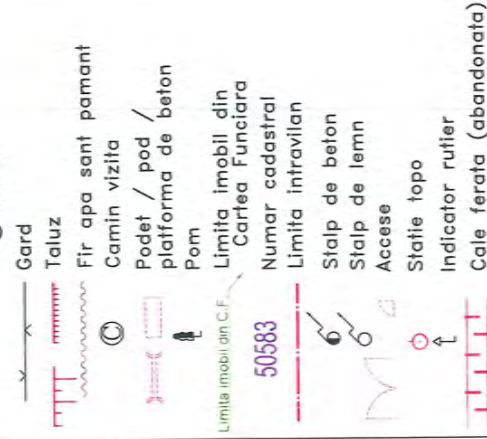 Gard
Taluz
Fir apa sant pamant
Camin vizita
Podet / pod /
platforma de beton
Pom
Limita imobil din C.F.
Limita imobil din
Cartea Funciara
50583
Numar cadastral
Limita intravilan
Stalp de beton
Stalp de lemn
Accese
Statie topo
Indicator rutier
Cale ferata (abandonata)